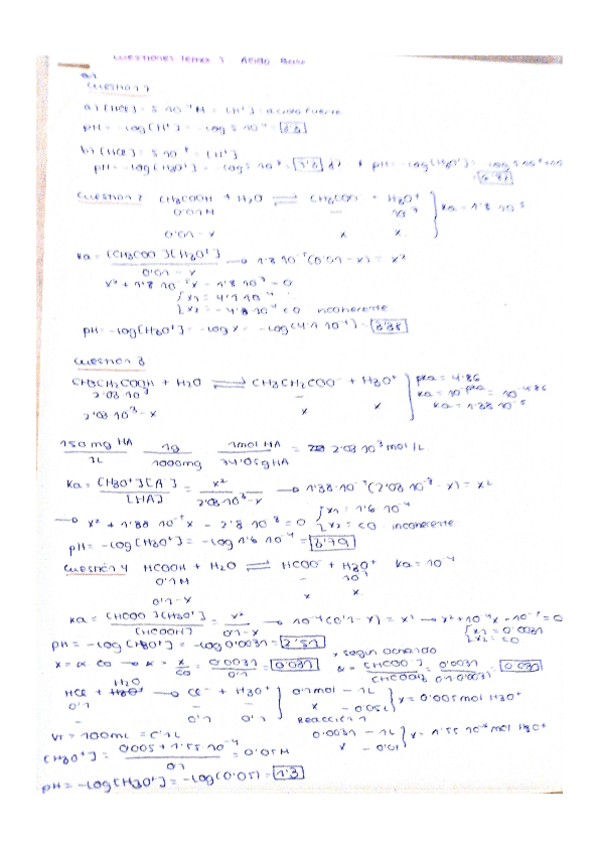 Cuestiones Tema 3 Acido Base
Cuestion 1
a) [HCl] = 5 10⁻⁴M = [H⁺] : acido fuerte
pH = -log[H⁺] = -log 5 10⁻⁴ = 3'3
b) [HCl] = 5 10⁻⁸ = [H⁺]
pH = -log[H₃O⁺] = -log 5 10⁻⁸ = 7'3
pH = -log[H₃O⁺] =
Cuestion 2 CH₃COOH + H₂O ⇌ CH₃COO⁻ + H₃O⁺ Ka = 1'8 10⁻⁵
0'01M — 10⁻⁷
0'01-x x x
Ka = [CH₃COO⁻][H₃O⁺] / 0'01-x → 1'8 10⁻⁵(0'01-x) = x²
x² + 1'8 10⁻⁵x - 1'8 10⁻⁷ = 0
x₁ = 4'1 10⁻⁴
x₂ = -4'8 10⁻⁴ <0 incoherente
pH = -log[H₃O⁺] = -log x = -log(4'1 10⁻⁴) = 3'38
Cuestion 3
CH₃CH₂COOH + H₂O ⇌ CH₃CH₂COO⁻ + H₃O⁺ pKa = 4'86
2'03 10⁻³ — Ka = 10^-pKa = 10^-4'86
2'03 10⁻³-x x x Ka = 1'38 10⁻⁵
150 mg HA / 1L 1g / 1000mg 1mol HA / 74'05g HA = 2'03 10⁻³ mol/L
Ka = [H₃O⁺][A⁻] / [HA] = x² / 2'03 10⁻³-x → 1'38·10⁻⁵(2'03 10⁻³-x) = x²
→ x² + 1'38 10⁻⁵x - 2'8 10⁻⁸ = 0 x₁ = 1'6 10⁻⁴
x₂ = <0 incoherente
pH = -log[H₃O⁺] = -log 1'6 10⁻⁴ = 3'79
Cuestion 4 HCOOH + H₂O ⇌ HCOO⁻ + H₃O⁺ Ka = 10⁻⁴
0'1M — 10⁻⁷
0'1-x x x
Ka = [HCOO⁻][H₃O⁺] / [HCOOH] = x² / 0'1-x → 10⁻⁴(0'1-x) = x² → x²+10⁻⁴x-10⁻⁵=0
x₁ = 0'0031
x₂ = <0
pH = -log[H₃O⁺] = -log 0'0031 = 2'51
x = α C₀ → α = x / C₀ = 0'0031 / 0'1 = 0'031
HCl + H₂O → Cl⁻ + H₃O⁺ 0'1mol - 1L
0'1 — — x - 0'05L x = 0'005mol H₃O⁺
— 0'1 0'1 Reaccion 1
VT = 100mL = 0'1L 0'0031 - 1L
x - 0'05L x = 1'55 10⁻⁴ mol H₃O⁺
[H₃O⁺] = 0'005 + 1'55 10⁻⁴ / 0'1 = 0'05M
pH = -log[H₃O⁺] = -log(0'05) = 1'3